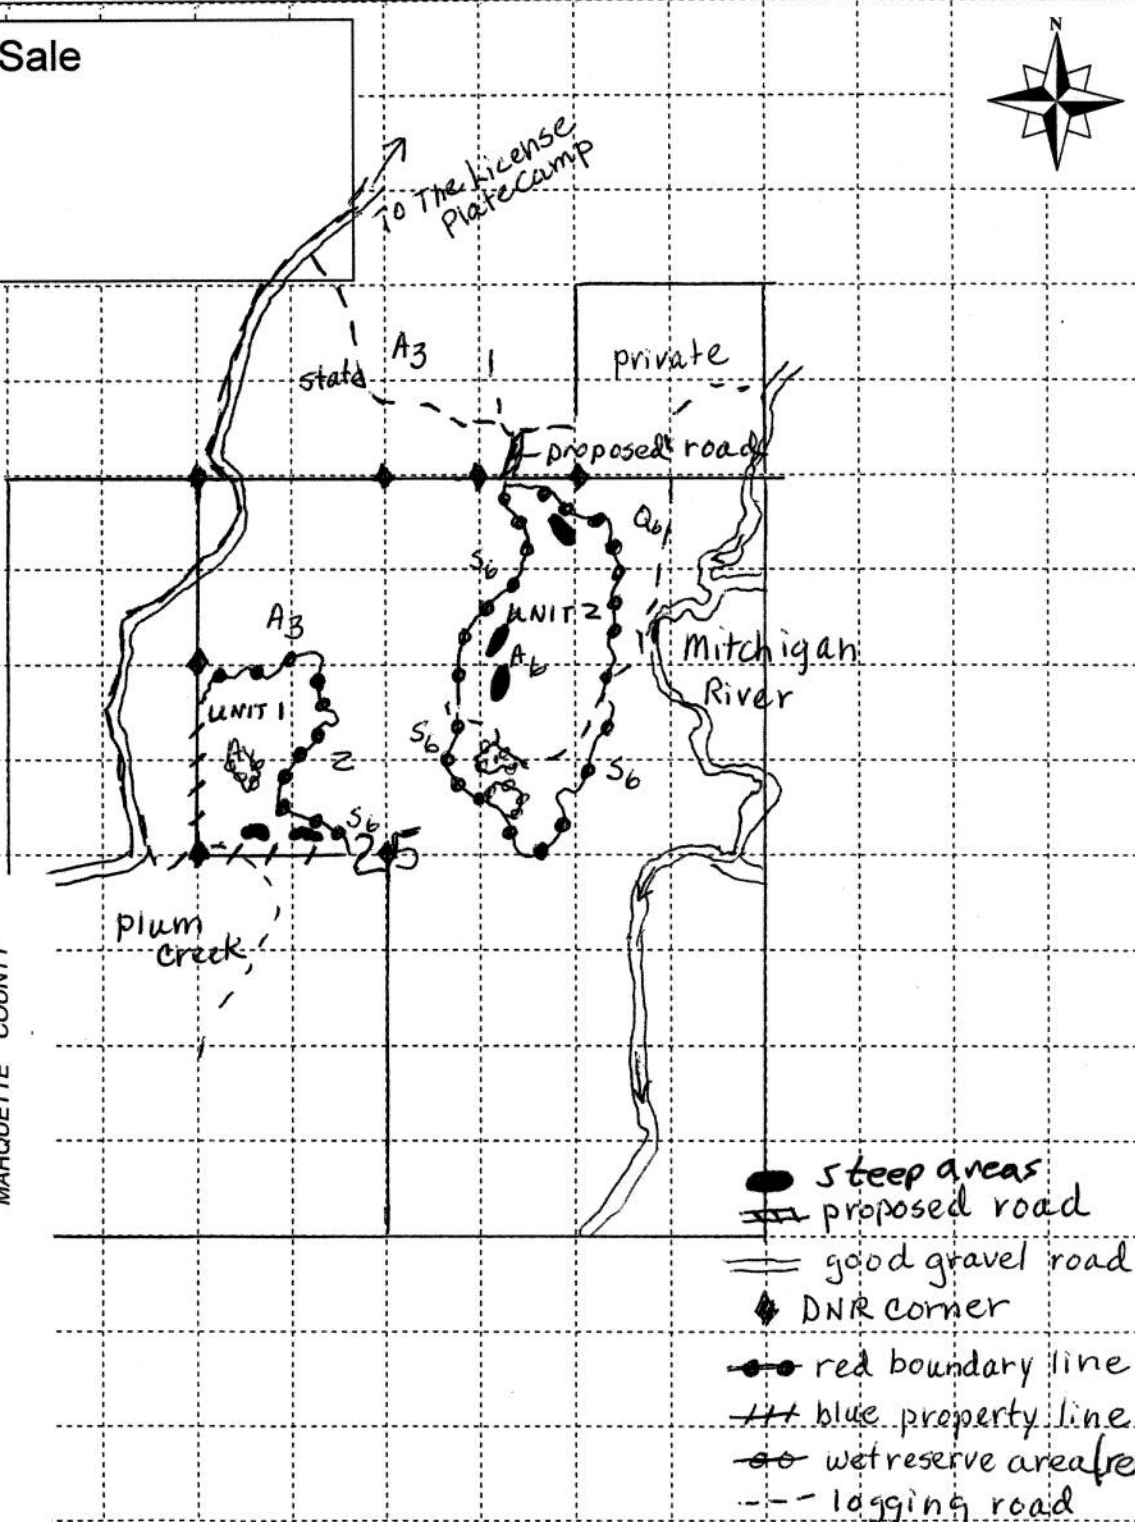 Sale
N
To The License
Plate Camp
A3
state
private
proposed road
Q6
S6
UNIT 2
A3
A6
Mitchigan
River
UNIT 1
S6
A6
2
S6
S6
25
Plum
Creek
MARQUETTE COUNTY
steep areas
proposed road
good gravel road
DNR corner
red boundary line
blue property line
wet reserve area (re
logging road